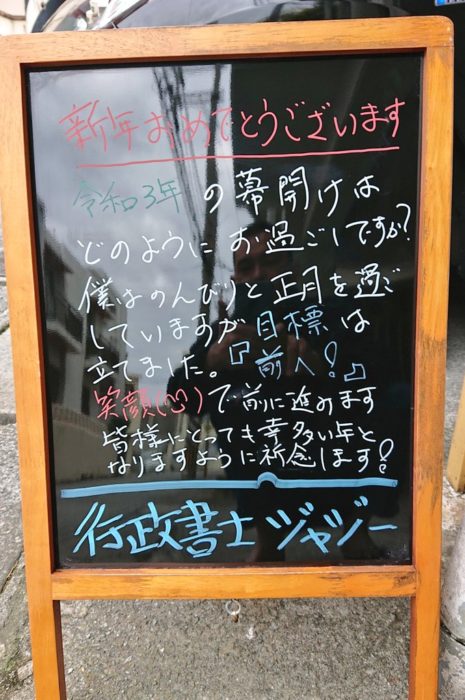 新年おめでとうございます
令和3年の幕開けは
どのようにお過ごしですか?
僕はのんびりと正月を過ご
していますが目標は
立てました。『前へ!』
笑顔(心)で前に進みます
皆様にとっても幸多い年と
なりますように祈念します!
行政書士 ジャジー